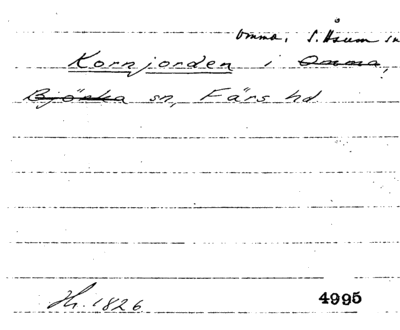 Omma, S. Åsum sn
Kornjorden i Omma,
Björka sn, Färs hd
Hr. 1826
4995